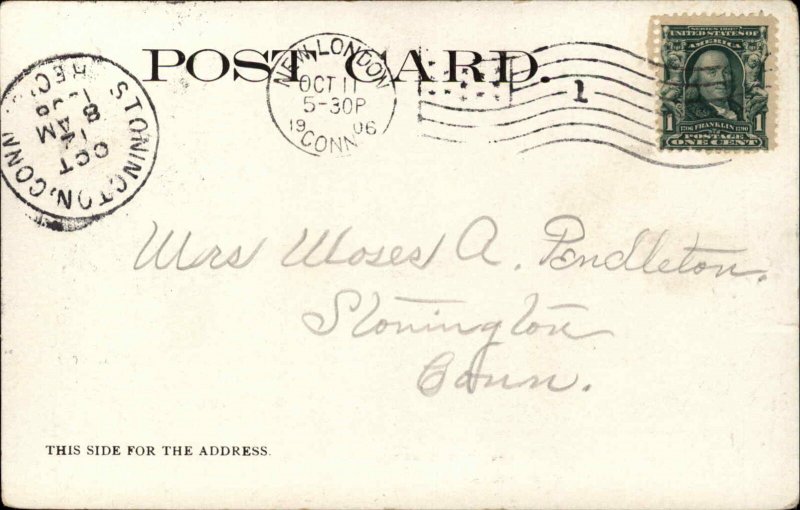 POST CARD.
NEW LONDON
OCT 11
5-30P
19 06
CONN.
1
SERIES 1902
UNITED STATES OF
AMERICA
1 1706 FRANKLIN 1790 1
POSTAGE
ONE CENT
STONINGTON, CONN.
OCT
AM
8
REC'D
Mrs Moses A. Pendleton.
Stonington
Conn.
THIS SIDE FOR THE ADDRESS.